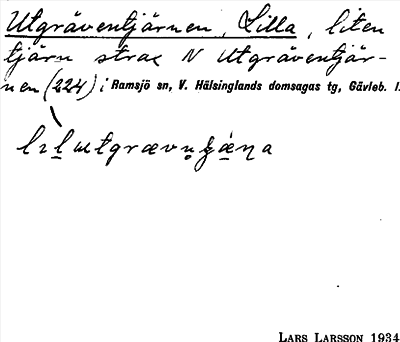 Utgräventjärnen, Lilla, liten
tjärn strax N Utgräventjär-
nen (224) i Ramsjö sn, V. Hälsinglands domsagas tg, Gävleb. l.
LARS LARSSON 1934